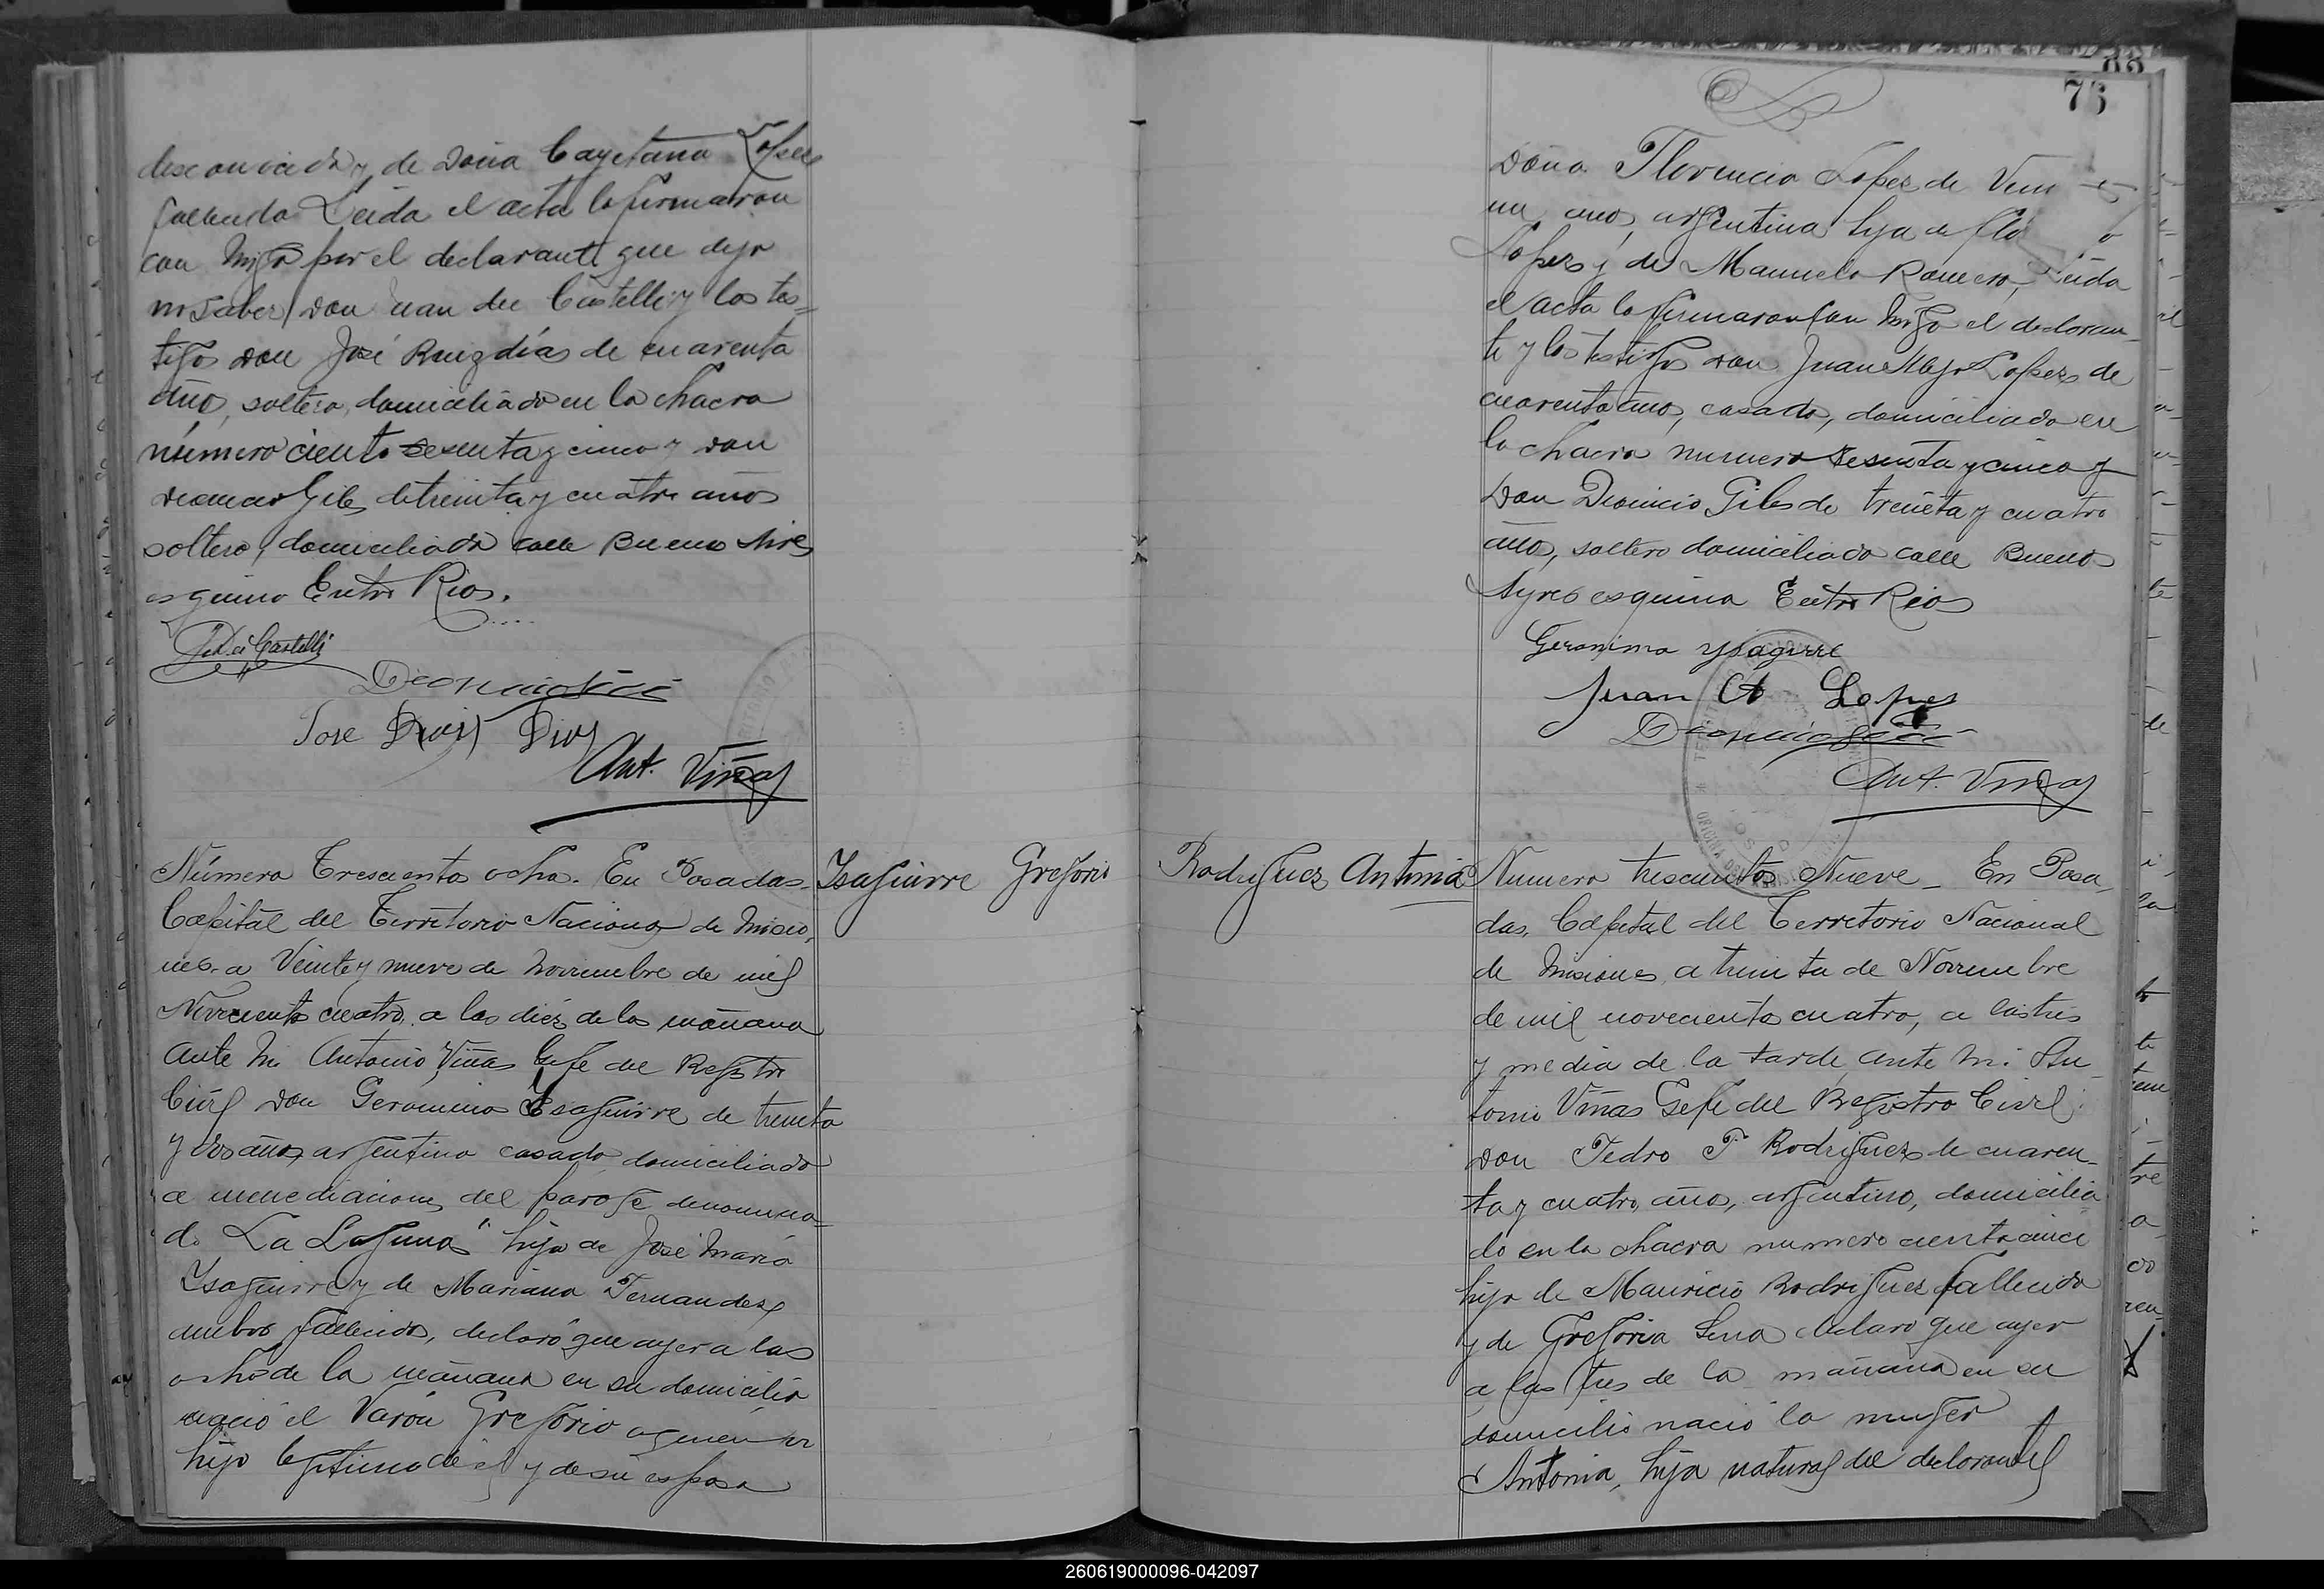 desconocido y de Doña Cayetana Lopez
fallecida Leida el acta la firmaron
con migo por el declarante que dijo
no saber, don Juan dei Castelli y los tes=
tigos don José Ruiz dias de cuarenta
años, soltero, domiciliado en la chacra
número ciento sesenta y cinco y don
Gile, de treinta y cuatro años
soltero, domiciliado calle Buenos Aires
esquina Entre Rios.
J. Dei Castelli
Jose Ruis Dias
Ant. Viñas
Número Trescientos ocho. En Posadas.
Capital del Territorio Nacional de Misio,
nes. a Veinte y nueve de Noviembre de mil
Novecientos cuatro, a las diez de la mañana
Ante Mi Antonio Viñas Gefe del Registro
Civil don Geronimo Ysaguirre de treinta
y dos años, argentino casado domiciliado
a inmediaciones del paraje denomina=
do La Laguna" hijo de José Maria
Ysaguirre y de Mariana Fernandez
ambos fallecidos, declaró que ayer a las
ocho de la mañana en su domicilio
nació el Varón Gregorio
hijo legitimo de él y de su esposa
Isaguirre Gregorio
88
76
Doña Florencia Lopez de
un años, argentina hija de
Lopez y de Manuela Romero, Leida
el acta la firmaron con migo el declaran_
te y los testigos don Juan Lopez de
cuarenta años, casado, domiciliado en
la chacra numero sesenta y cinco y
Don Dionicio Giles de treinta y cuatro
años, soltero domiciliado calle Buenos
Ayres esquina Entre Rios
Geronimo ysagirre
Juan A Lopes
Ant. Viñas
Rodriguez Antonia
Numero trescientos Nueve_ En Posa_
das, Capital del Territorio Nacional
de Misiones a treinta de Noviembre
de mil novecientos cuatro, a las tres
y media de la tarde, ante mi An_
tonio Viñas Gefe del Registro Civil
don Pedro P Rodriguez de cuaren_
ta y cuatro años, argentino, domicilia
do en la chacra numero ciento cinco
hijo de Mauricio Rodriguez fallecido
y de Gregoria declaro que ayer
a las tres de la mañana en su
domicilio nació la mujer
Antonia, hija natural del declarante
260619000096-042097